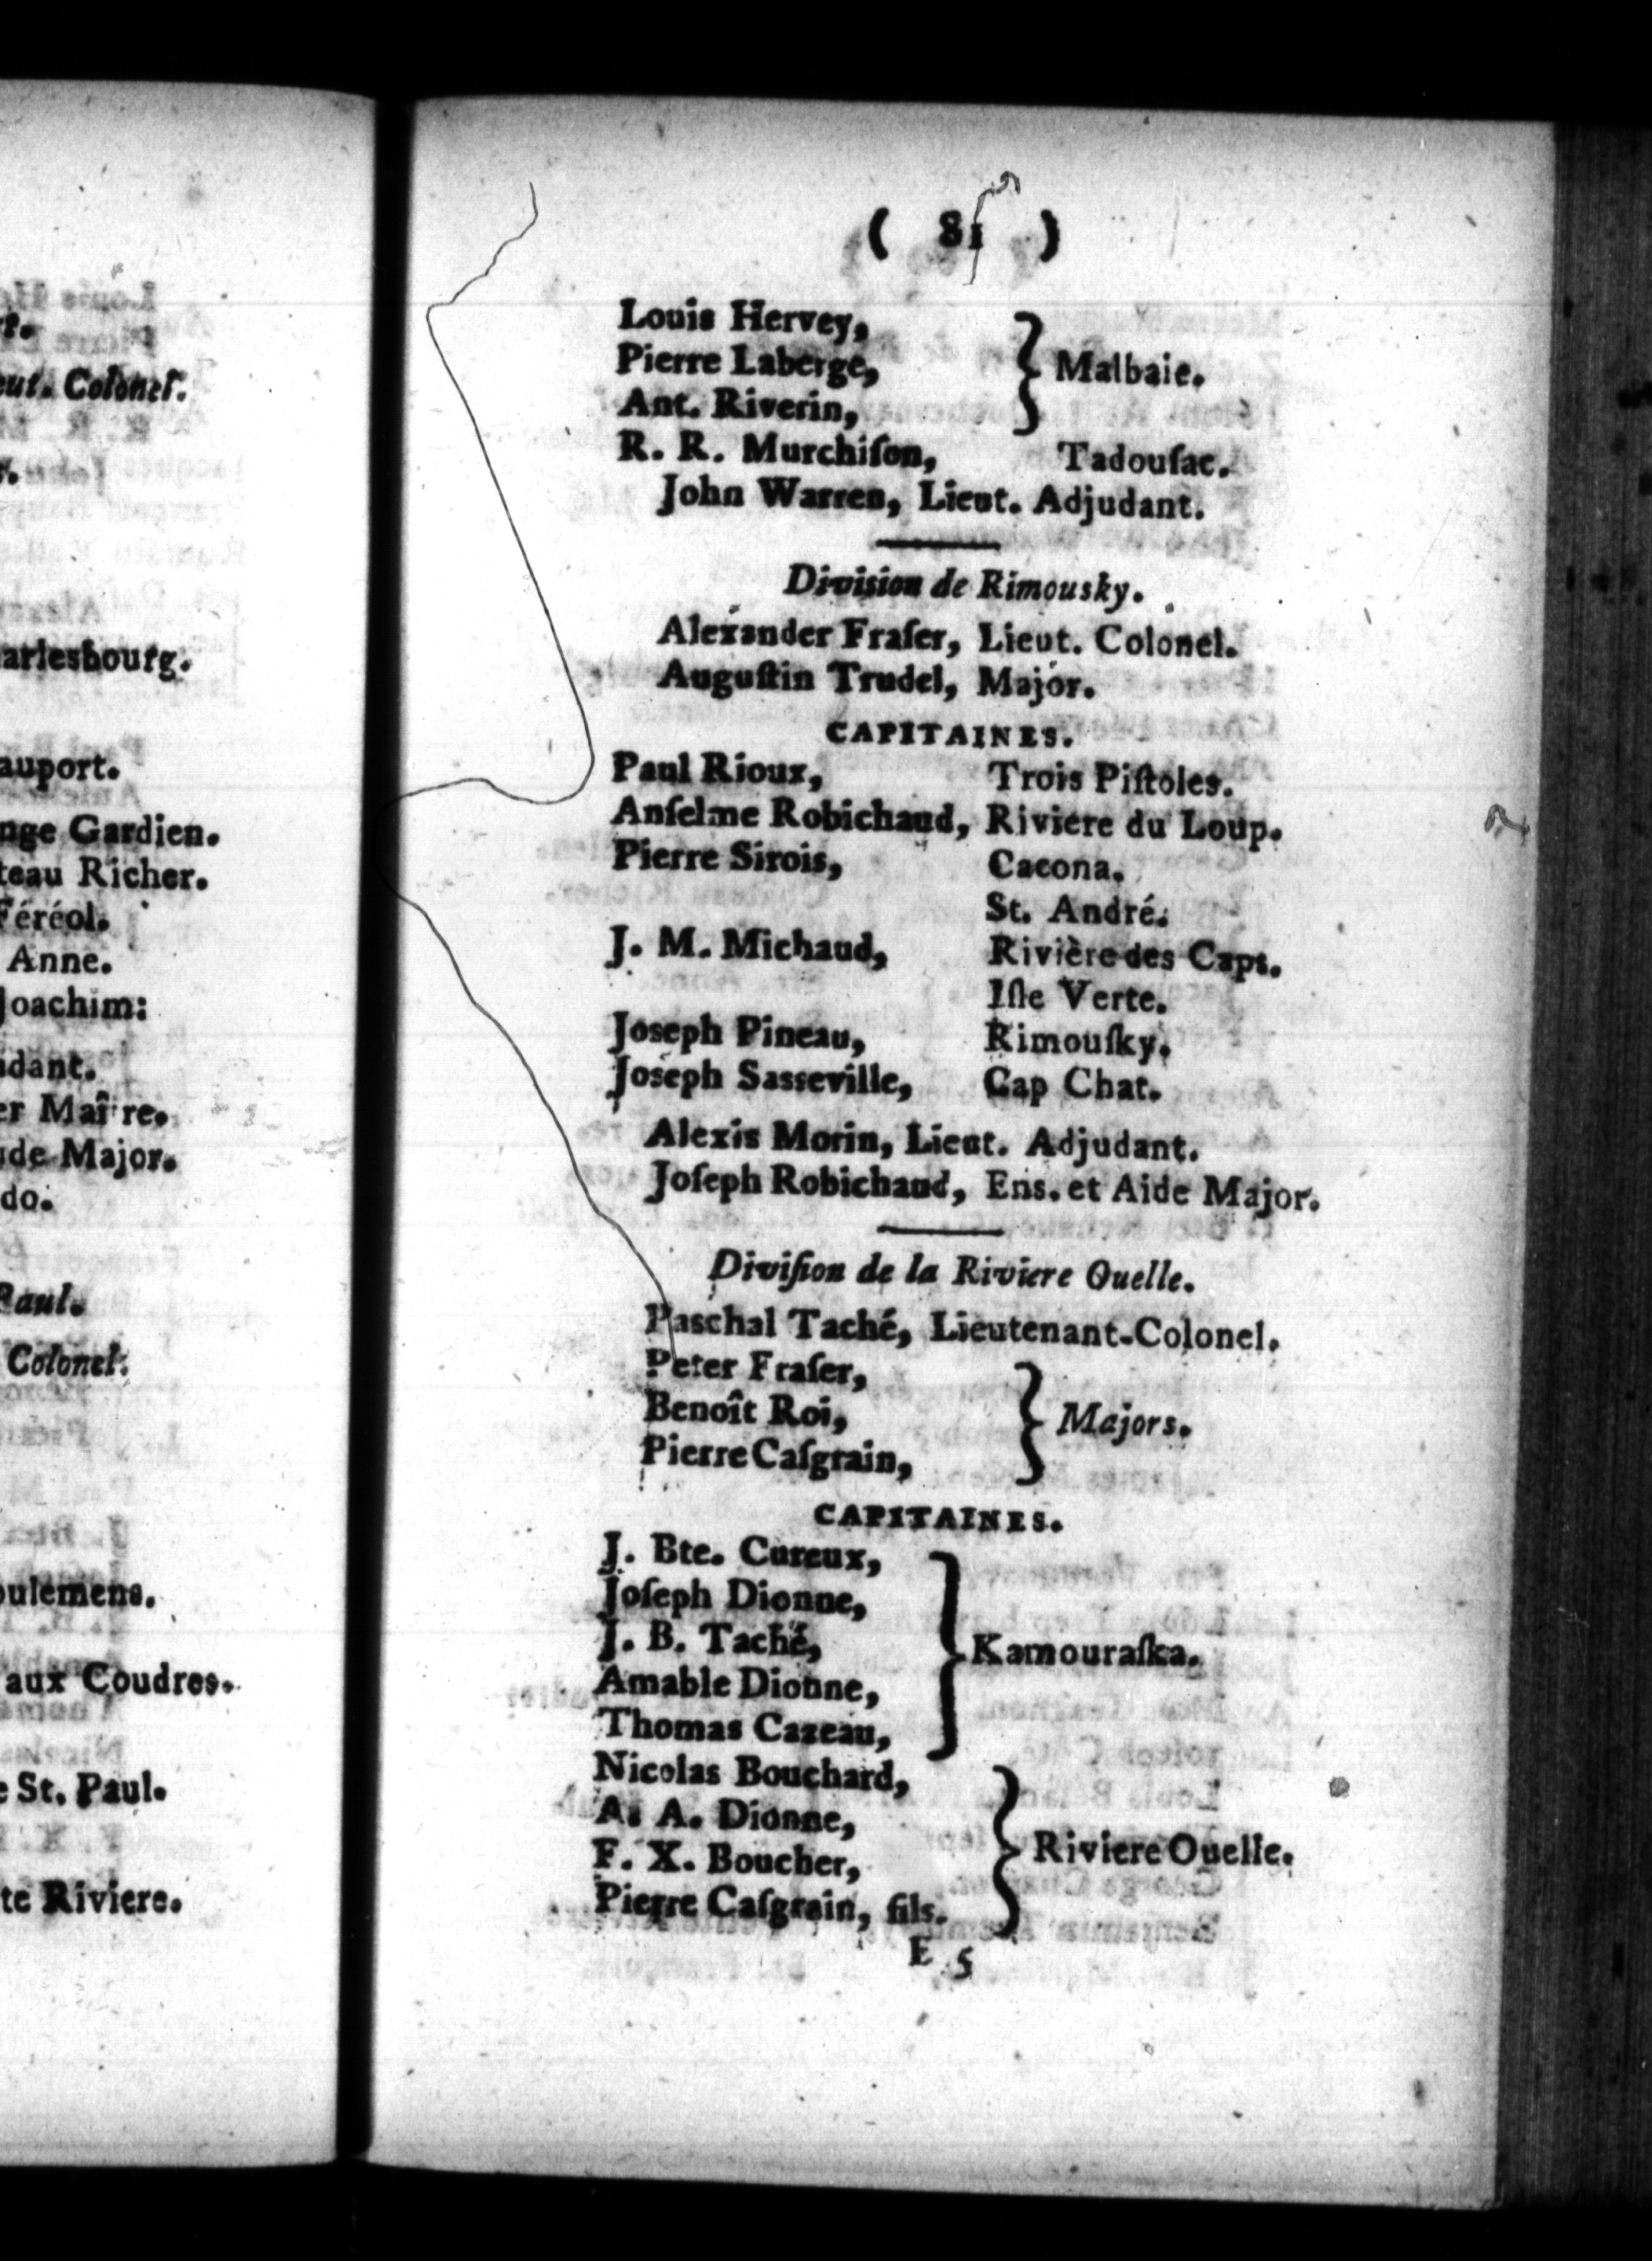 t.
eut. Colonel.
r.
arlesbourg.
auport.
nge Gardien.
teau Richer.
Féréol.
Anne.
Joachim:
udant.
er Maître.
ide Major.
do.
Paul.
Colonel.
oulemens.
aux Coudres.
e St. Paul.
te Riviere.
( 81 )
Louis Hervey,
Pierre Laberge, } Malbaie.
Ant. Riverin,
R. R. Murchiſon, Tadouſac.
John Warren, Lieut. Adjudant.
Division de Rimousky.
Alexander Fraſer, Lieut. Colonel.
Auguſtin Trudel, Major.
CAPITAINES.
Paul Rioux, Trois Piſtoles.
Anſelme Robichaud, Riviere du Loup.
Pierre Sirois, Cacona.
St. André.
J. M. Michaud, Rivière des Caps.
Iſle Verte.
Joseph Pineau, Rimouſky.
Joseph Sasseville, Cap Chat.
Alexis Morin, Lieut. Adjudant.
Joſeph Robichaud, Ens. et Aide Major.
Diviſion de la Riviere Ouelle.
Paschal Taché, Lieutenant-Colonel.
Peter Fraſer,
Benoît Roi, } Majors.
Pierre Caſgrain,
CAPITAINES.
J. Bte. Cureux,
Joſeph Dionne,
J. B. Taché, } Kamouraſka.
Amable Dionne,
Thomas Cazeau,
Nicolas Bouchard,
A. A. Dionne, } Riviere Ouelle.
F. X. Boucher,
Pierre Caſgrain, fils.
E 5